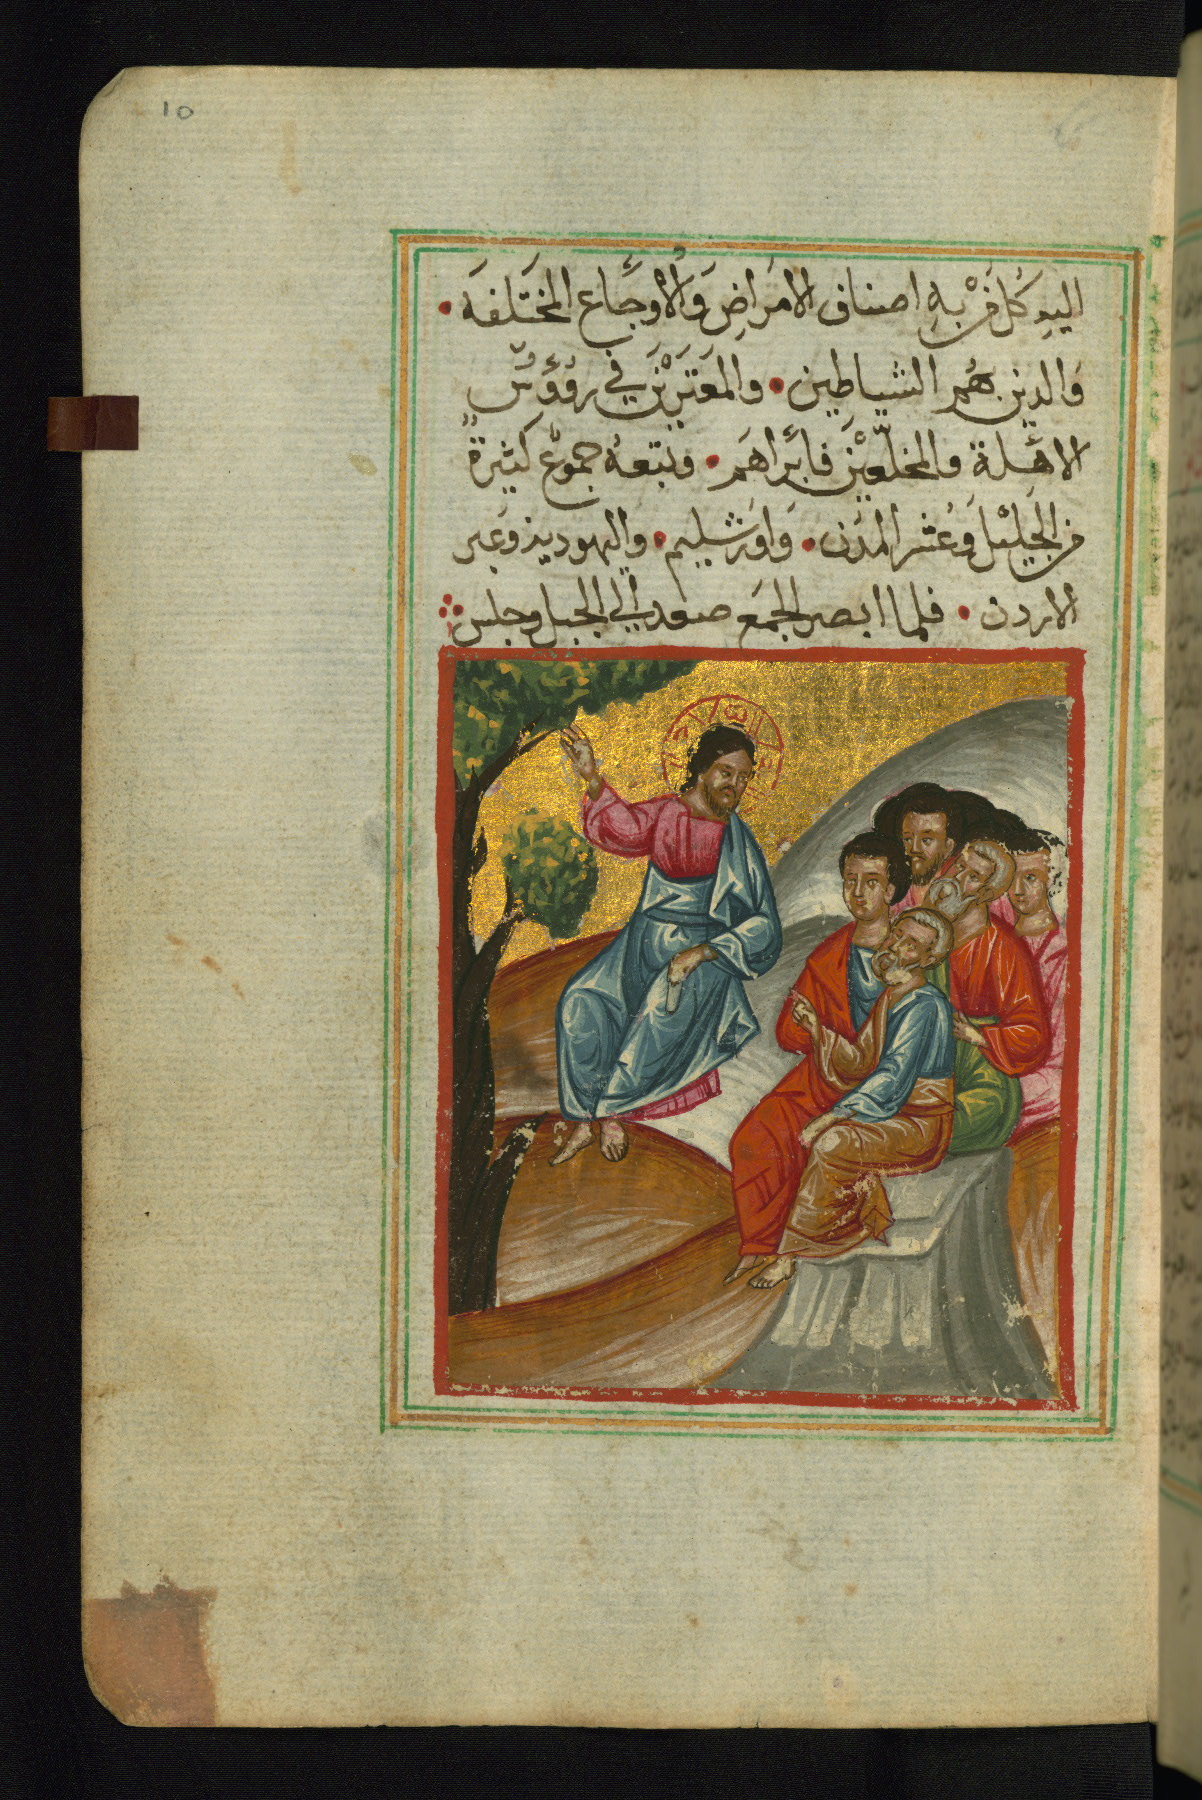 10
اليهِ كُل مَن بِهِ اصناف الامرَاضِ وَالأوجَاع المختلفَه
وَالدين بهُم الشياطين وَالمعَترَيْن في رؤوسِ
الاهلةِ والمخلّعيْن فابرَاهَم وتبعهُ جموعٌ كثيرةٌ
من الجَليْل وَعَشر المدَن وَاورَشليم واليهودية وَعبر
الاردن فلما ابصر الجمَع صعد إلى الجبل وجلس
Ο ω Ν